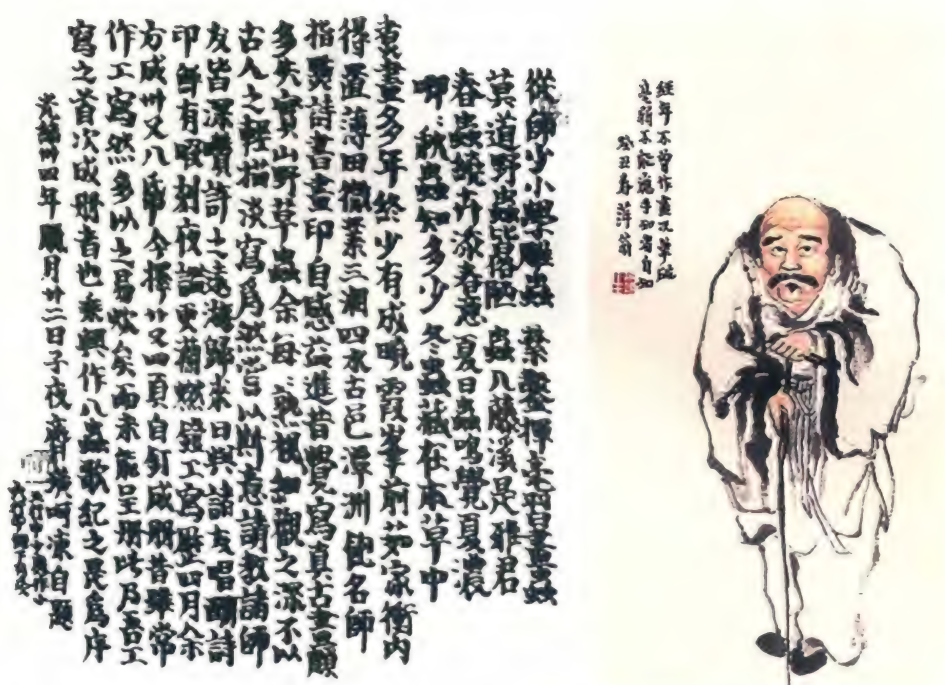 從師少小學雕蟲 棄鑿揮毫習畫蟲
莫道野蟲皆俗陋 蟲入藤溪是雅君
春蟲繞卉添春意夏日蟲鳴覺夏濃
唧々秋蟲知多少 冬蟲藏在本草中
衷畫多年終少有成曉霞峯前茹家衝內
得置薄田微業三湘四水古邑潭洲 飽名師
指點詩書畫印自感益進昔覺寫真古畫頗
多失實山野草蟲余每々熟視細觀之深不以
古人之輕描淡寫爲然嘗以斯意請教諸師
友皆深贊許之遠游歸來日與諸友唱酬詩
印餘有暇刻夜設更蠟燃燈工寫歷四月余
方成卅又八幀今擇廿又四頁自釘成册昔雖常
作工寫然多以之易炊矣而未能呈册此乃吾工
寫之首次成册者也乘興作八蟲歌紀之畏爲序
光緒卅四年臘月廿二日子夜齊璜呵凍自題
經年不曾作畫又筆
不能 手 者自知
癸丑春 萍翁